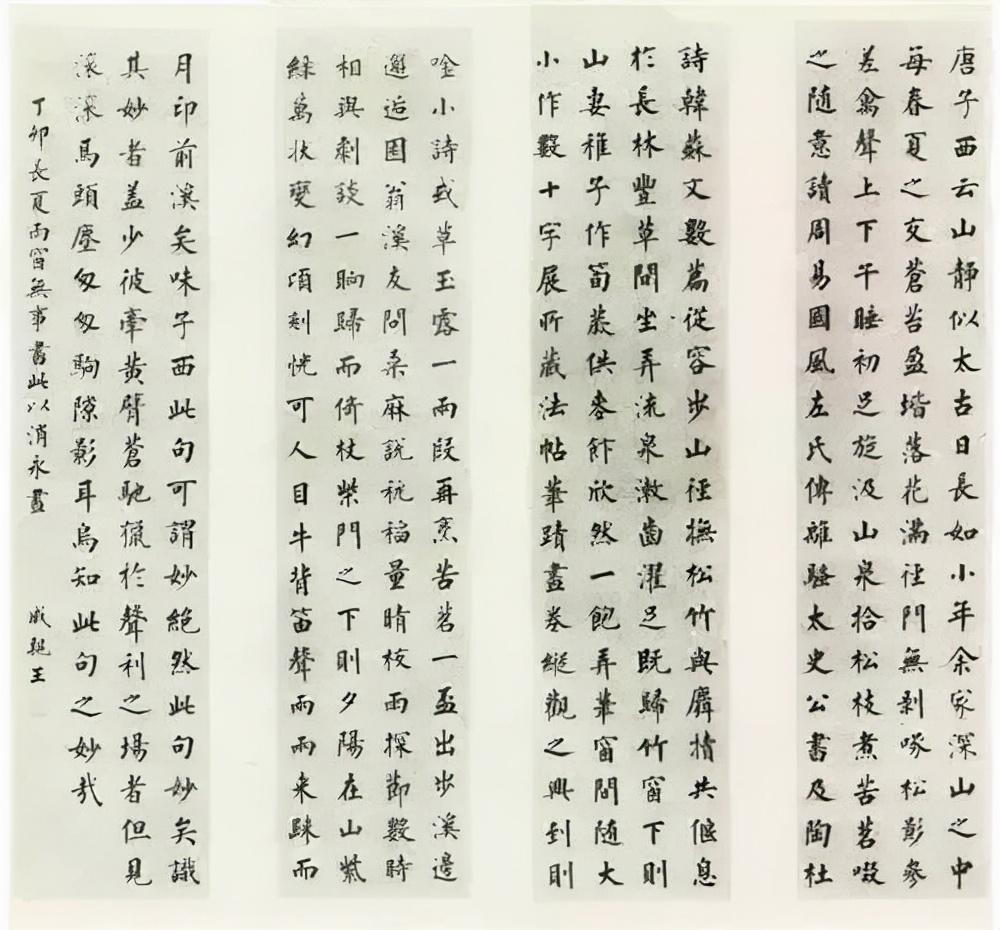 唐子西云山靜似太古日長如小年余家深山之中
每春夏之交蒼苔盈堦落花滿徑門無剝啄松影參
差禽聲上下午睡初足旋汲山泉拾松枝煮苦茗啜
之随意讀周易國風左氏傳離騷太史公書及陶杜
詩韓蘇文數篇從容步山徑撫松竹與麛犢共偃息
於長林豐草間坐弄流泉漱齒濯足既歸竹窗下則
山妻稚子作筍蕨供麥飰欣然一飽弄筆窗間随大
小作數十字展所藏法帖筆蹟畫卷縱觀之興到則
唫小詩或草玉露一兩段再烹苦茗一盃出步溪邊
邂逅園翁溪友問桑麻說秔稻量晴校雨探節數時
相與劇談一晌歸而倚杖柴門之下則夕陽在山紫
綠萬狀變幻頃刻恍可人目牛背笛聲兩兩来歸而
月印前溪矣味子西此句可謂妙絕然此句妙矣識
其妙者盖少彼牽黃臂蒼馳獵於聲利之場者但見
滾滾馬頭塵匆匆駒隙影耳烏知此句之妙哉
丁卯長夏雨窗無事書此以消永晝 成親王